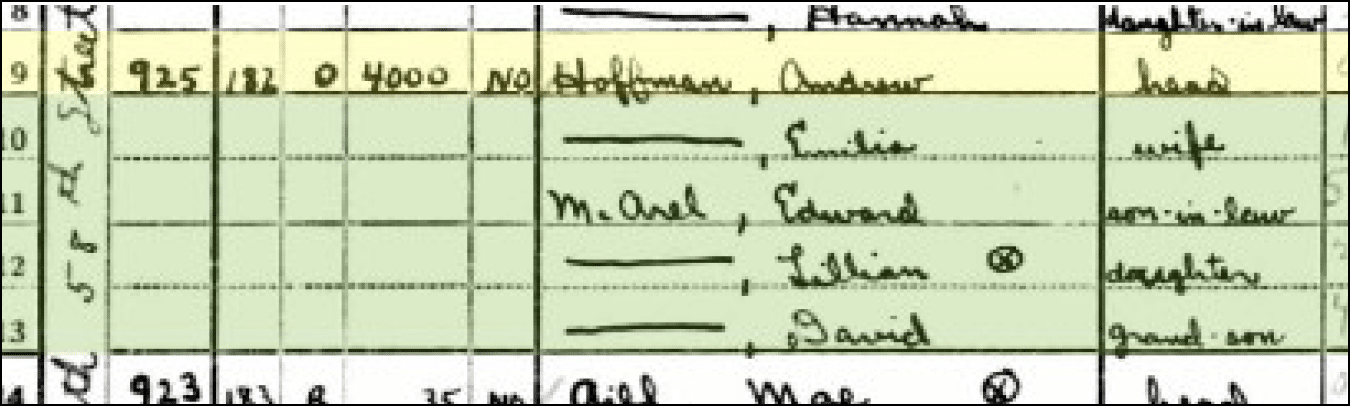 8 ——— , Hannah daughter-in-law
9 925 182 O 4000 No Hoffman , Andrew head
10 ——— , Emilia wife
11 , Edward son-in-law
12 ——— , Lillian ⓧ daughter
13 ——— , David grand-son
923 183 R 35 No Mae ⓧ head
58th Street
th